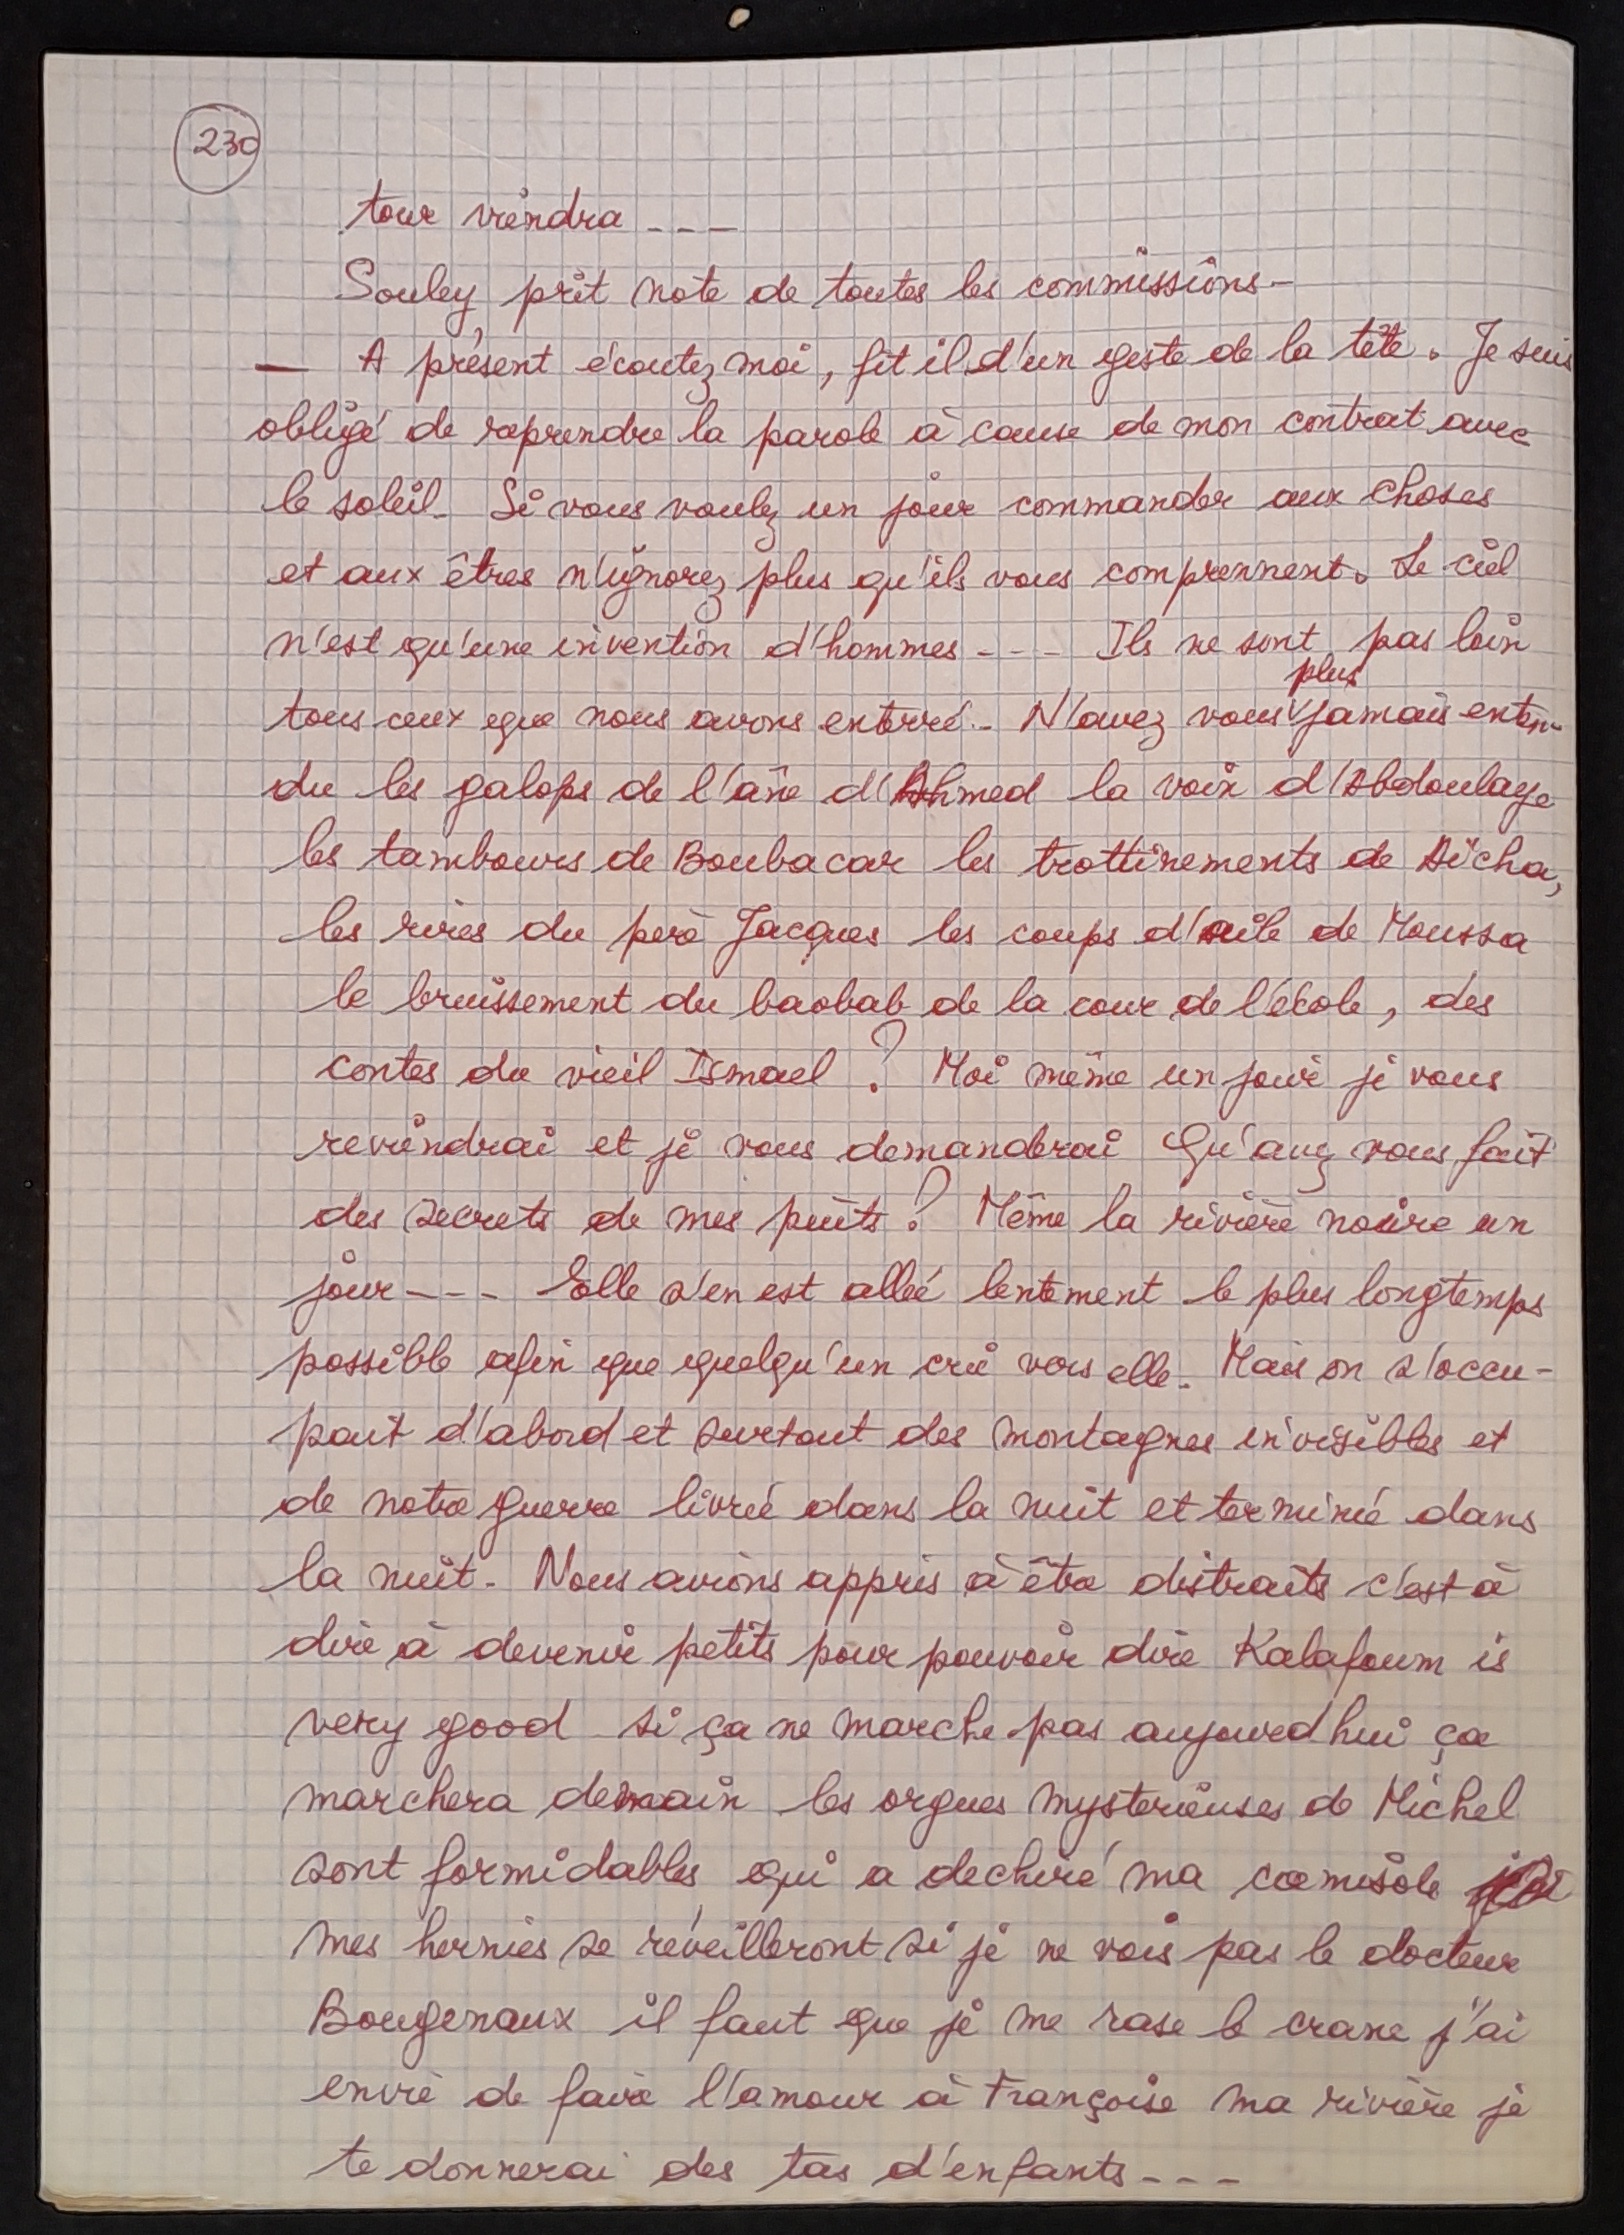 230
tour viendra ---
Souley prit note de toutes les commissions -
— A présent écoutez moi, fit il d'un geste de la tête. Je suis
obligé de reprendre la parole à cause de mon contrat avec
le soleil. Si vous voulez un jour commander aux choses
et aux êtres n'ignorez plus qu'ils vous comprennent. Le ciel
n'est qu'une invention d'hommes --- Ils ne sont pas loin
plus
tous ceux que nous avons enterré. N'avez vous jamais enten-
du les galops de l'âne d'Ahmed la voix d'Abdoulaye
les tambours de Boubacar les trottinements de Aïcha,
les rires du père Jacques les coups d'aile de Moussa
le bruissement du baobab de la cour de l'école, des
contes du vieil Ismael ? Moi même un jour je vous
reviendrai et je vous demanderai Qu'avez vous fait
des secrets de mes puits ? Même la rivière noire un
jour --- Elle s'en est allée lentement le plus longtemps
possible afin que quelqu'un crie vers elle. Mais on s'occu-
pait d'abord et surtout des montagnes invisibles et
de notre guerre livrée dans la nuit et terminée dans
la nuit. Nous avions appris à être distraits c'est à
dire à devenir petits pour pouvoir dire Kalafoum is
very good si ça ne marche pas aujourd'hui ça
marchera demain les orgues mysterieuses de Michel
sont formidables qui a dechiré ma camisole
mes hernies se réveilleront si je ne vois pas le docteur
Bougenaux il faut que je me rase le crane j'ai
envie de faire l'amour à Françoise ma rivière je
te donnerai des tas d'enfants ---